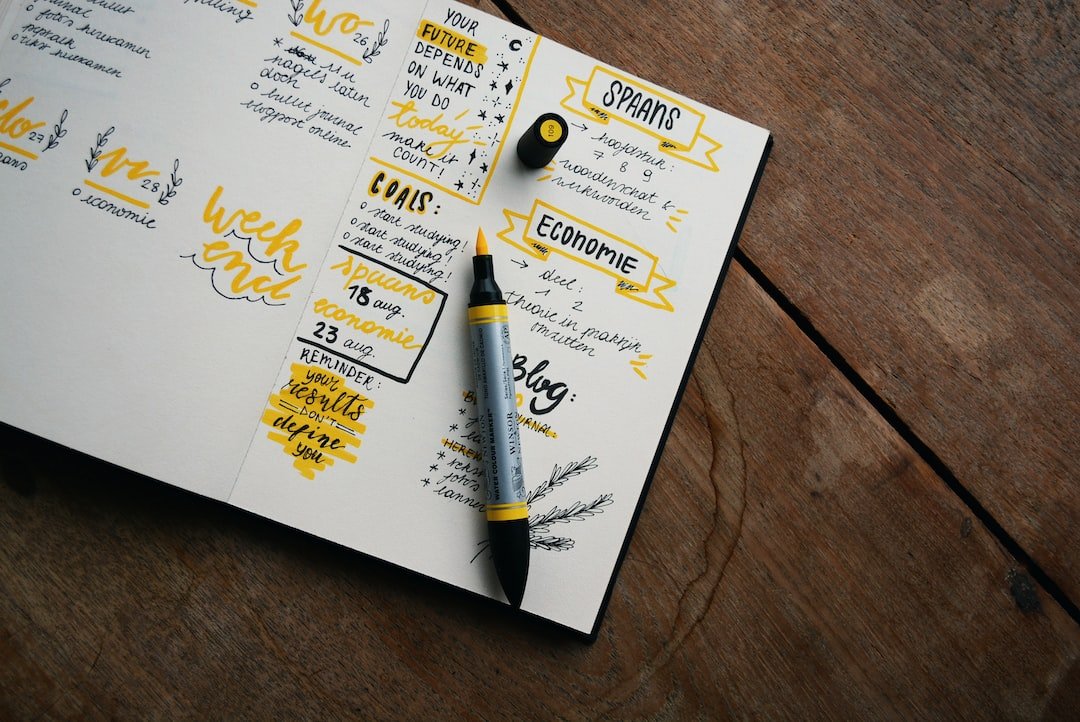 o foto's herexamen
peptalk
o tips herexamen
wo 26
* nagels laten
doen
o bullet journal
blogpost online
do 27
vr 28
o economie
Week
end
YOUR
FUTURE
DEPENDS
ON WHAT
YOU DO
today
make it
COUNT!
GOALS:
o start studying!
o start studying!
o start studying!
spaans
18 aug.
economie
23 aug.
REMINDER:
your
results
DON'T
define
you
109
SPAANS
→ hoofdstuk:
7 8 9
woordenschat &
werkwoorden
ECONOMIE
→ deel:
1 2
theorie in praktijk
omzetten
Blog:
WATER COLOUR MARKER
WINSOR